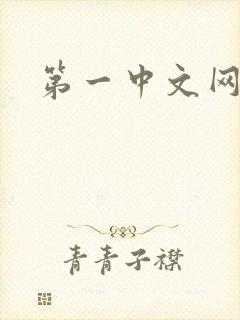 第一中文网
青青子襟